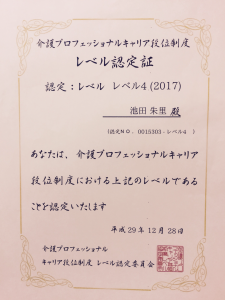 介護プロフェッショナルキャリア段位制度
レベル認定証
認定：レベル レベル4 (2017)
池田 朱里 殿
(認定NO. 0015303 - レベル4 )
あなたは、介護プロフェッショナルキャリア
段位制度における上記のレベルである
ことを認定いたします
平成 29 年 12 月 28 日
介護プロフェッショナル
キャリア段位制度 レベル認定委員会